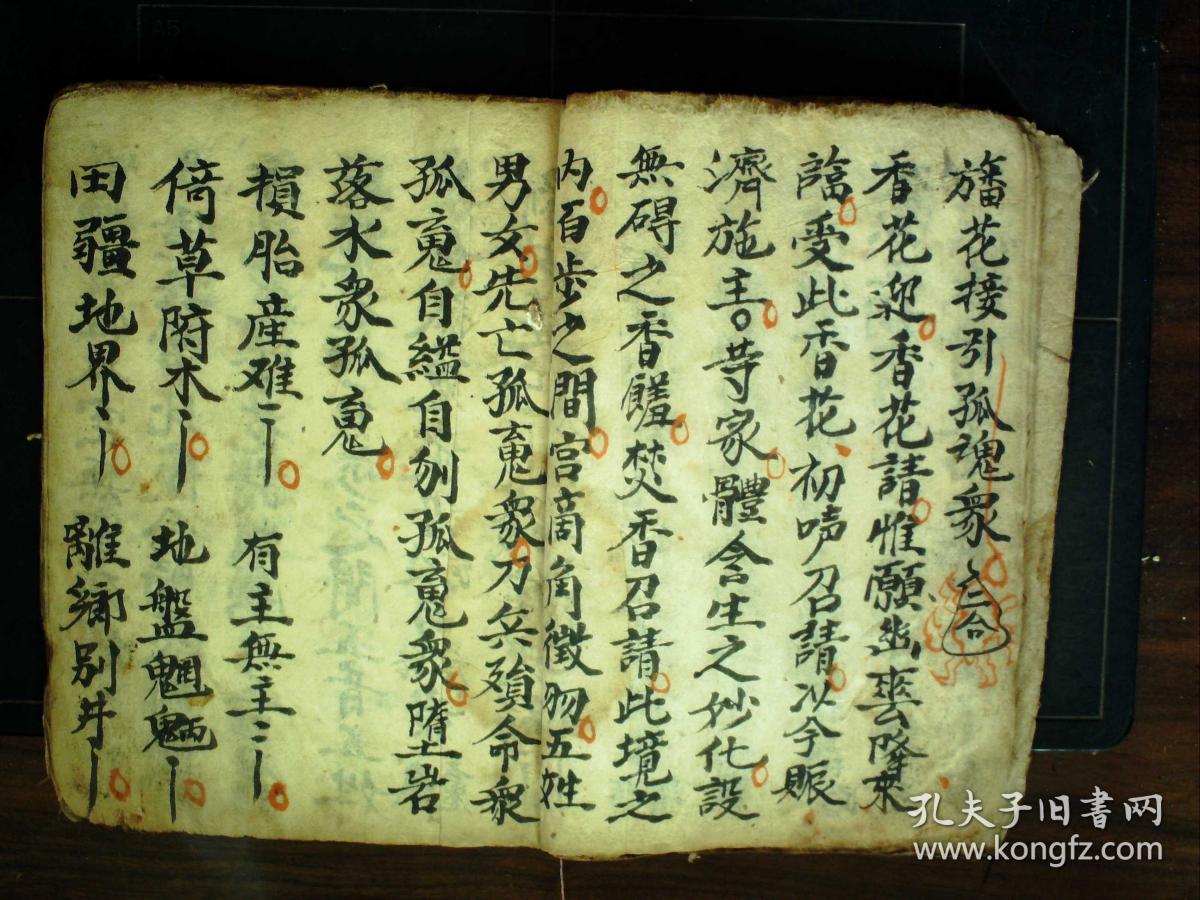 旛花接引孤魂衆 三合
香花迎香花請惟願幽靈降來
臨受此香花初吽召請以今賑
濟施主〇等家體含生之妙化設
無碍之香饈焚香召請此境之
内百步之間宫商角徵羽五姓
男女先亡孤䰟衆刀兵殞命衆
孤䰟自縊自刎孤䰟衆墮岩
落水衆孤䰟
損胎産难 有主無主
倚草附木 地盤魍魎
田疆地界 離鄉别井
孔夫子旧书网
www.kongfz.com